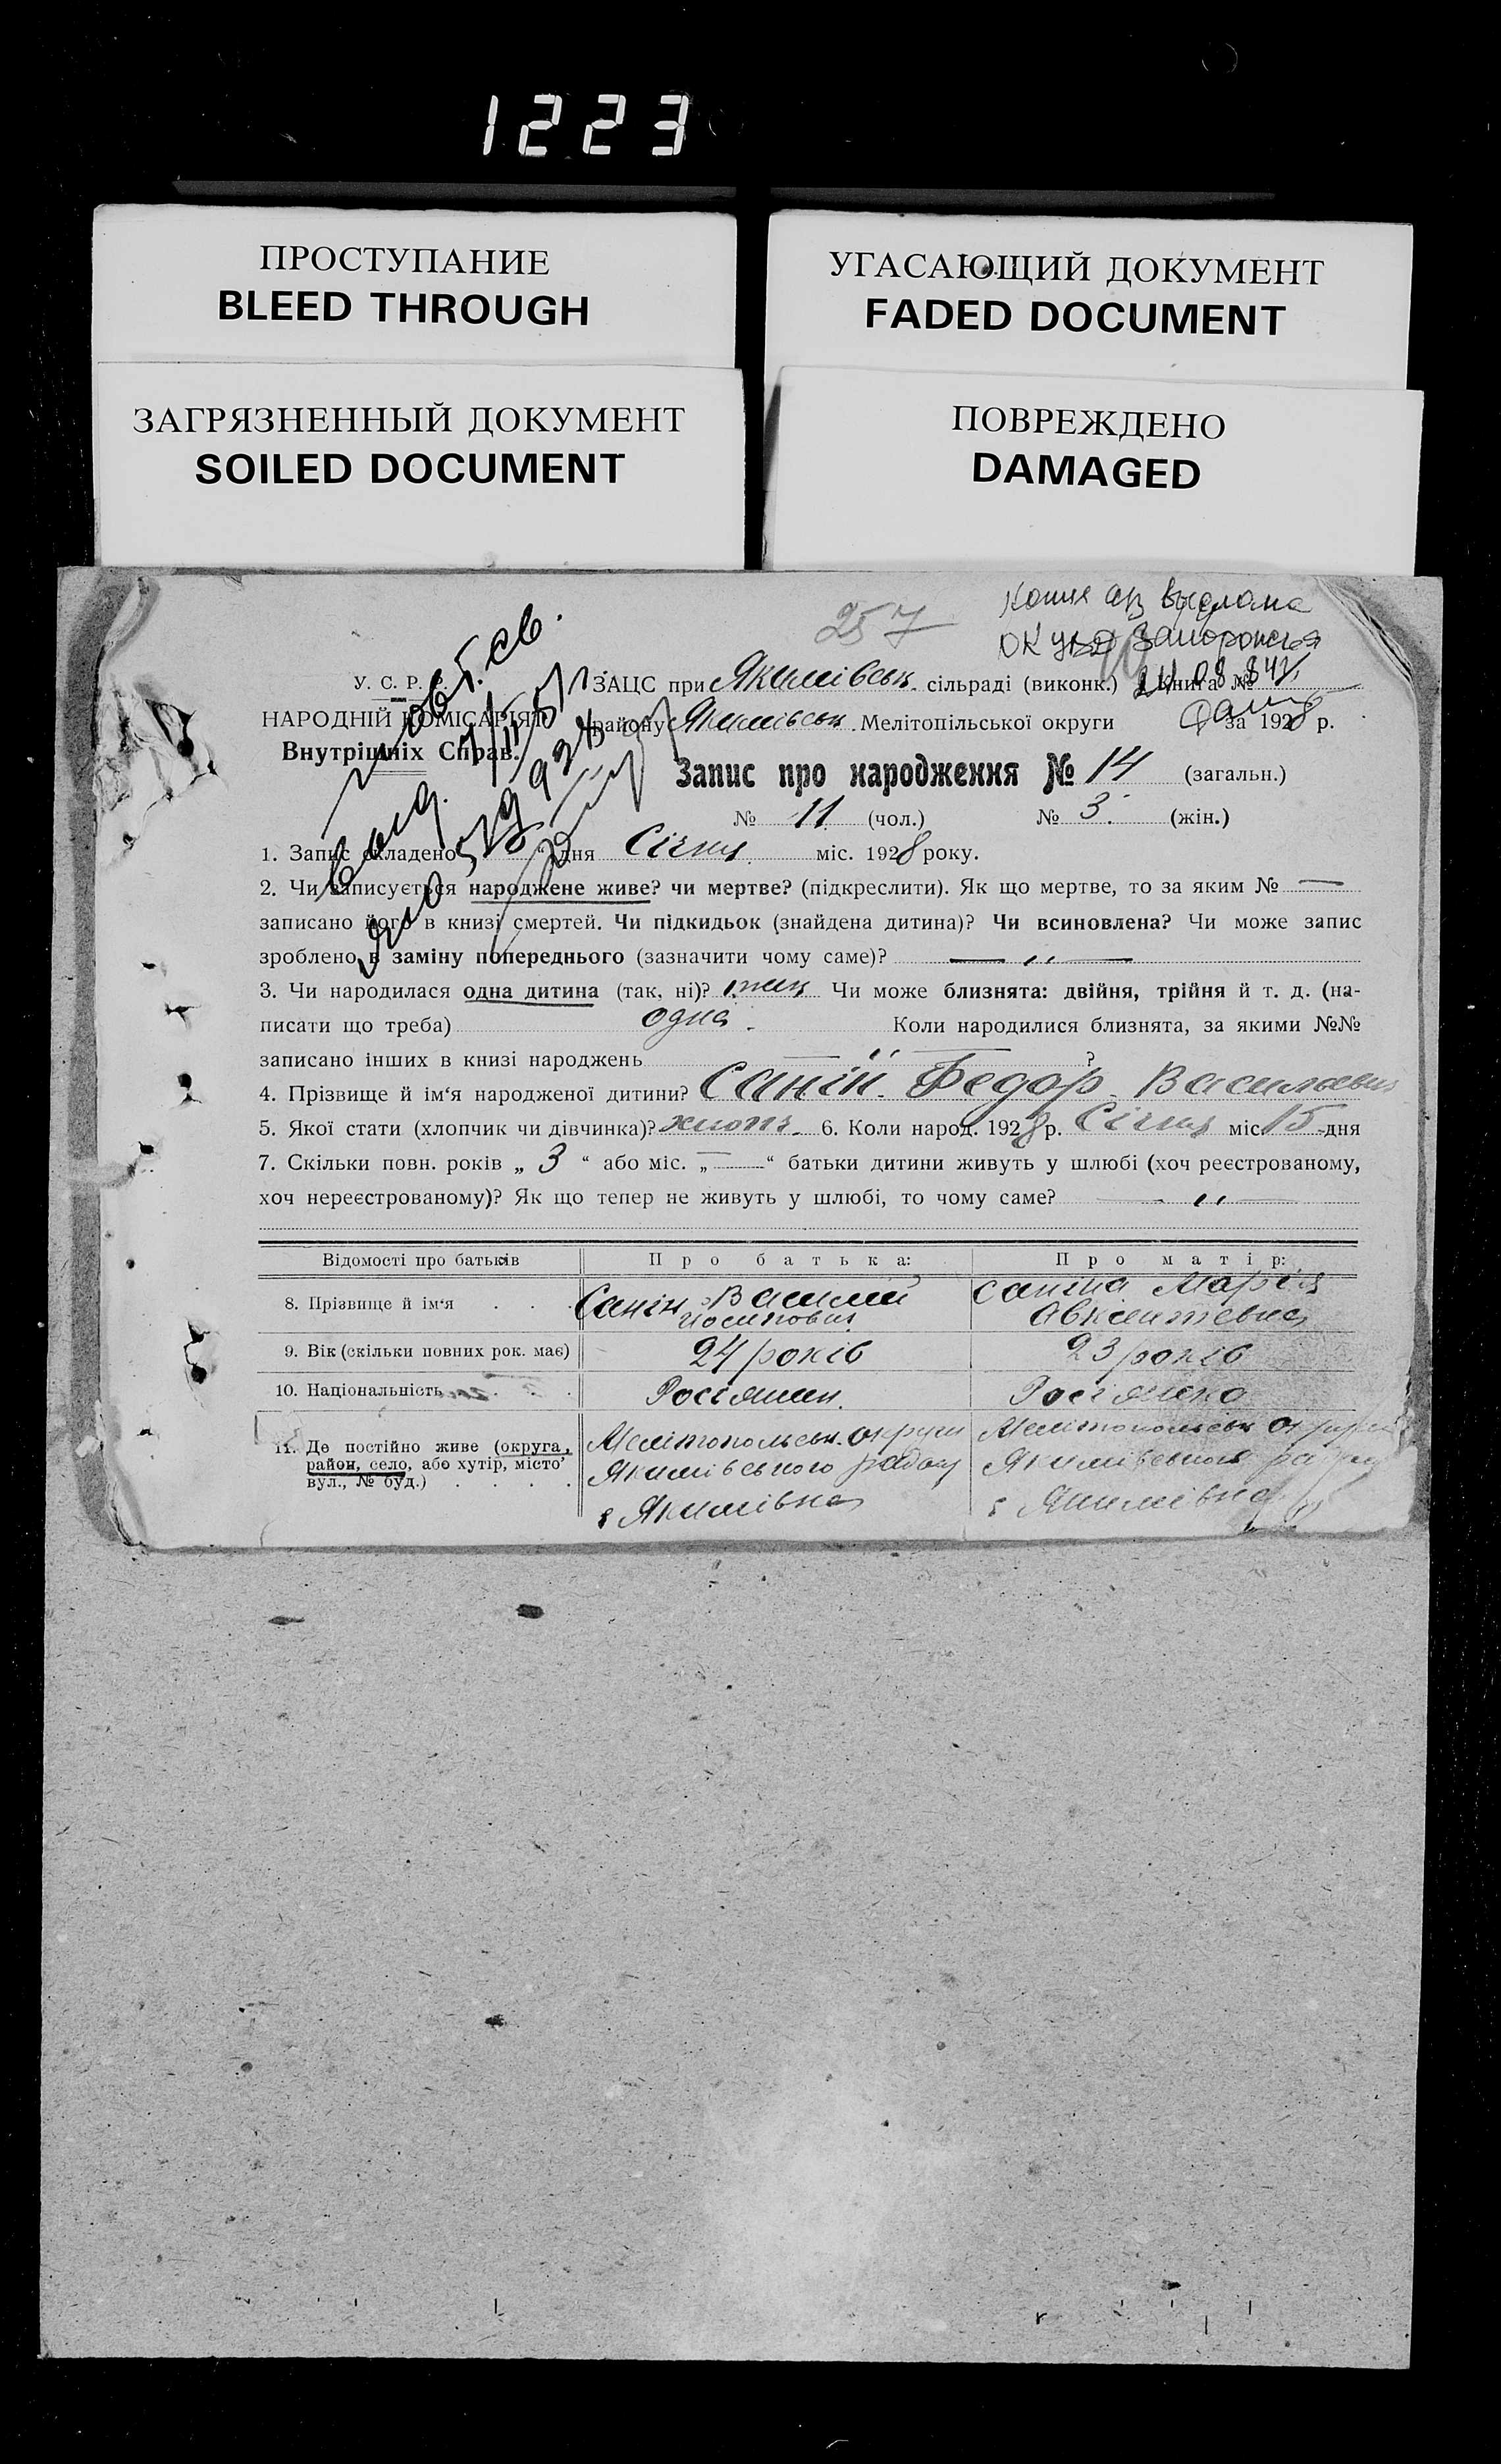 1223
ПРОСТУПАНИЕ
BLEED THROUGH
УГАСАЮЩИЙ ДОКУМЕНТ
FADED DOCUMENT
ЗАГРЯЗНЕННЫЙ ДОКУМЕНТ
SOILED DOCUMENT
ПОВРЕЖДЕНО
DAMAGED
257
У. С. Р. Р.
НАРОДНІЙ КОМІСАРІЯТ
Внутрішніх Справ.
ЗАЦС при Якимівськ. сільраді (виконк.) Книга №
району Якимівськ. Мелітопільської округи за 1928 р.
Запис про народження № 14 (загальн.)
№ 11 (чол.) № 3. (жін.)
1. Запис складено дня Січня міс. 1928 року.
2. Чи записується народжене живе? чи мертве? (підкреслити). Як що мертве, то за яким № —
записано його в книзі смертей. Чи підкидьок (знайдена дитина)? Чи всиновлена? Чи може запис
зроблено в заміну попереднього (зазначити чому саме)? — ,, —
3. Чи народилася одна дитина (так, ні)? так Чи може близнята: двійня, трійня й т. д. (на-
писати що треба) одна. Коли народилися близнята, за якими №№
записано інших в книзі народжень — ,, — ?
4. Прізвище й ім‘я народженої дитини? Санін Федор Василевич
5. Якої стати (хлопчик чи дівчинка)? хлопч. 6. Коли народ. 1928 р. Січня міс. 15 дня
7. Скільки повн. років „ 3 “ або міс. „ — “ батьки дитини живуть у шлюбі (хоч реєстрованому,
хоч нереєстрованому)? Як що тепер не живуть у шлюбі, то чому саме? — ,, —
Відомості про батьків Про батька: Про матір:
8. Прізвище й ім‘я . . . Санін Василий Санина Марія
Иосипович Авксентевна
9. Вік (скільки повних рок. має) 24 років 23 років
10. Національність . . . Росіянин. Росіянка
11. Де постійно живе (округа, Мелітопольськ. округи Мелітопольськ округи
район, село, або хутір, місто Якимівського району Якимівського району
вул., № буд.) . . . . с Якимівка с Якимівка